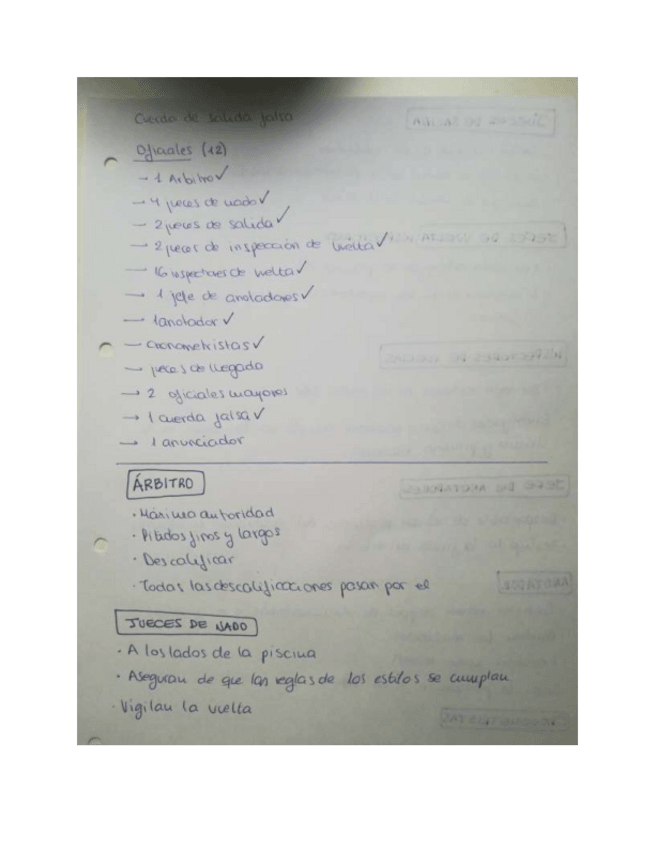 Cuerda de salida falsa
Oficiales (12)
→ 1 Arbitro ✓
→ 4 jueces de nado ✓
→ 2 jueces de salida ✓
→ 2 jueces de inspección de vuelta ✓
→ 16 inspectores de vuelta ✓
→ 1 jefe de anotadores ✓
→ 1 anotador ✓
→ Cronometristas ✓
→ jueces de llegada
→ 2 oficiales mayores
→ 1 cuerda falsa ✓
→ 1 anunciador
ÁRBITRO
· Máxima autoridad
· Pitidos finos y largos
· Descalificar
· Todas las descalificaciones pasan por el
JUECES DE NADO
· A los lados de la piscina
· Aseguran de que las reglas de los estilos se cumplan
· Vigilan la vuelta